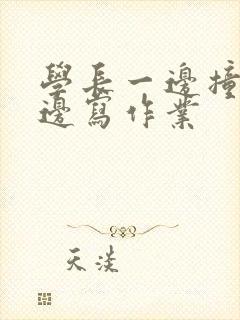 學長一邊撞
邊寫作業
天淡